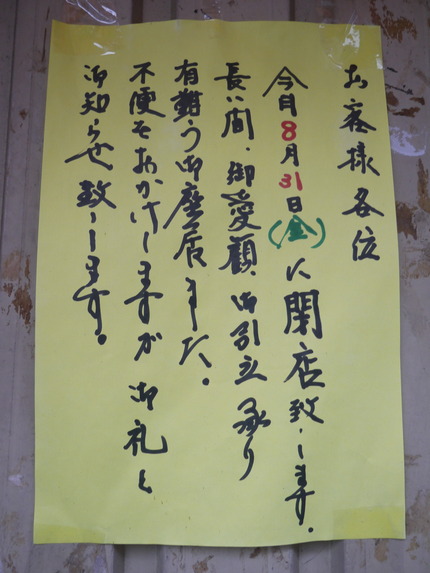 お客様各位
今日8月31日(金)に閉店致します。
長い間、御愛顧、御引立承り
有難う御座居ました。
不便をおかけしますが 御礼と
御知らせ致します。